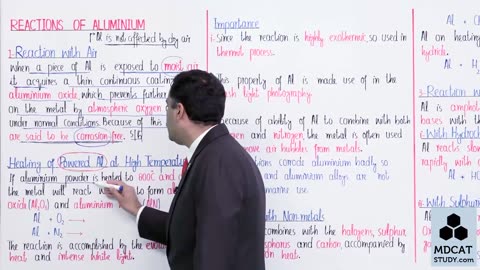 REACTIONS OF ALUMINIUM
Al is not affected by dry air
1. Reaction with Air
When a piece of Al is exposed to moist air
it acquires a thin continuous coating
aluminium oxide, which prevents further
on the metal by atmospheric oxygen
under normal conditions. Because of this
are said to be corrosion-free.
Heating of Powered Al at High Temperature
If aluminium powder is heated to 800C and a
the metal will react with to form al
oxid (Al₂O₃) and aluminium (AlN)
Al + O₂ →
Al + N₂ →
The reaction is accomplished by the evol
heat and intense white light.
Importance
1. Since the reaction is highly exothermic, so used in
thermit process.
This property of Al is made use of in the
light photography.
because of ability of Al to combine with both
and nitrogen, the metal is often used
air bubbles from metals.
corrodes aluminium badly so
and aluminium alloys are not
marine use.
with Non-metals
combines with the halogens, sulphur
phosphorus and carbon, accompanied by
heat.
Al +
Al on heating
hydride.
Al +
3. Reaction w
Al is ampho
bases with
with Hydroc
Al reacts slow
rapidly with c
Al +
with Sulphu
Al
MDCAT
STUDY.com